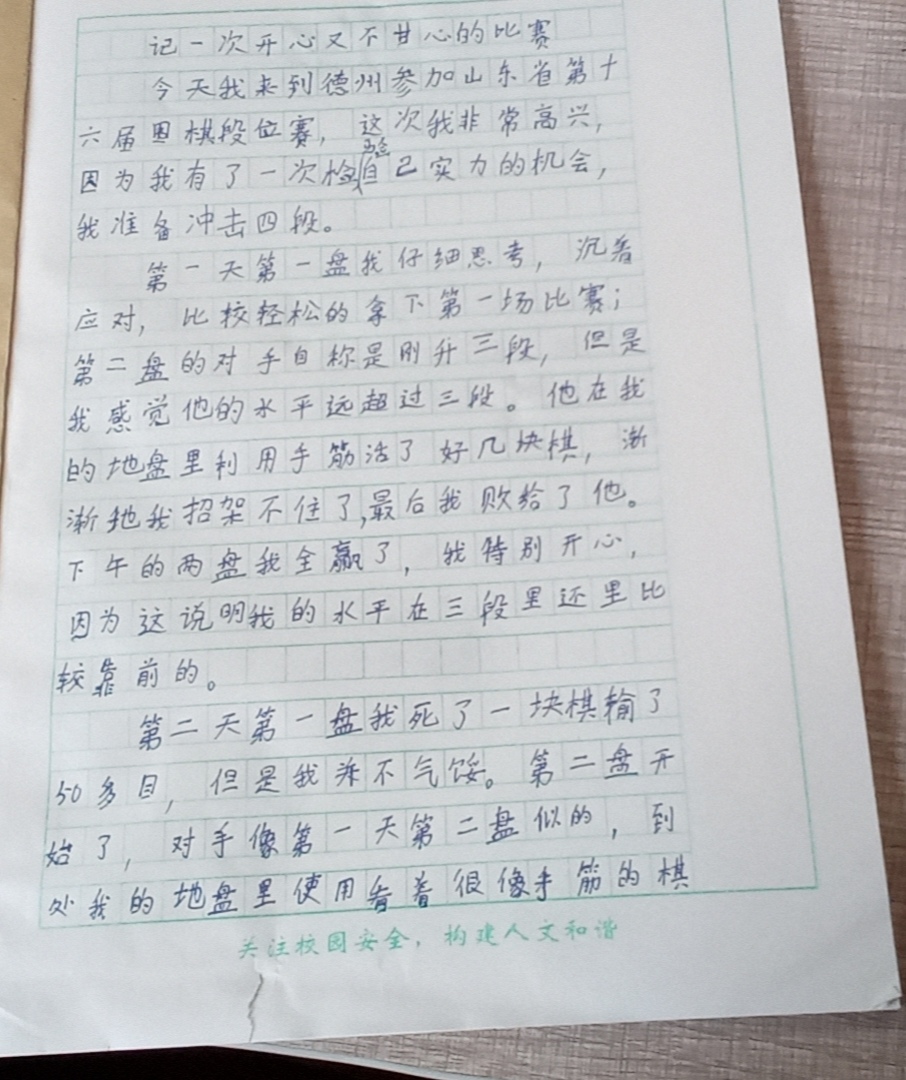 记一次开心又不甘心的比赛
今天我来到德州参加山东省第十
六届围棋段位赛，这次我非常高兴，
因为我有了一次检验自己实力的机会，
我准备冲击四段。
第一天第一盘我仔细思考，沉着
应对，比较轻松的拿下第一场比赛；
第二盘的对手自称是刚升三段，但是
我感觉他的水平远超过三段。他在我
的地盘里利用手筋活了好几块棋，渐
渐地我招架不住了，最后我败给了他。
下午的两盘我全赢了，我特别开心，
因为这说明我的水平在三段里还里比
较靠前的。
第二天第一盘我死了一块棋输了
50多目，但是我并不气馁。第二盘开
始了，对手像第一天第二盘似的，到
处我的地盘里使用看着很像手筋的棋
关注校园安全，构建人文和谐